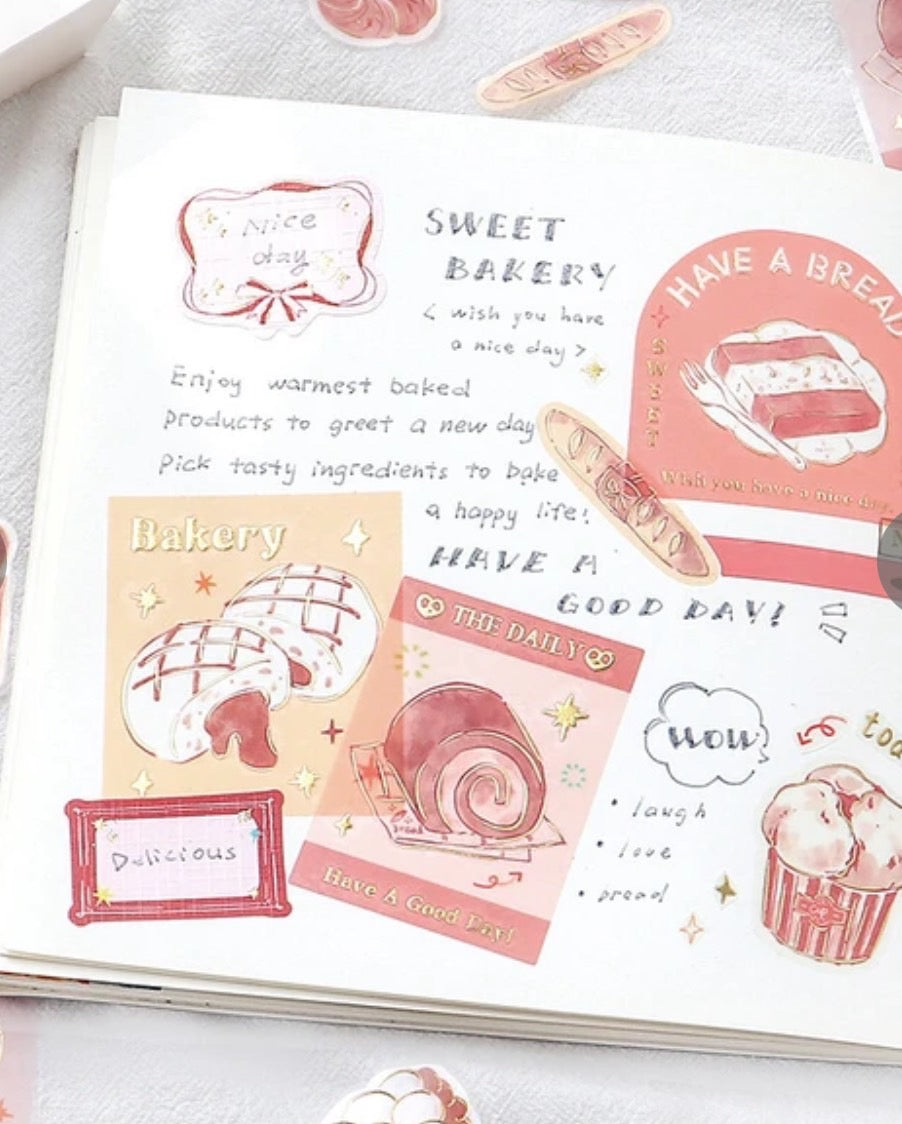 Nice
day
SWEET
BAKERY
< wish you have
a nice day >
HAVE A BREAD
SWEET
Wish you have a nice day.
Enjoy warmest baked
products to greet a new day
Pick tasty ingredients to bake
a happy life!
HAVE A
GOOD DAY!
Bakery
THE DAILY
Have A Good Day!
Delicious
WOW
• laugh
• love
• bread